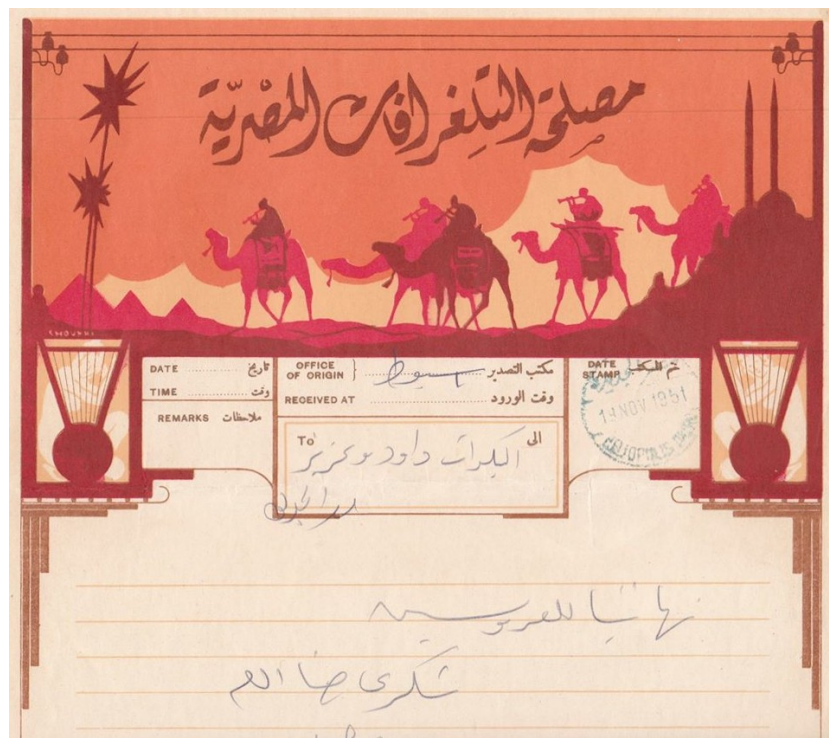 مصلحة التلغرافات المصرية
CHOUKRI
DATE تاريخ
TIME وقت
REMARKS ملاحظات
OFFICE OF ORIGIN مكتب التصدير اسيوط
RECEIVED AT وقت الورود
DATE STAMP ختم المكتب
NOV 1951
HELIOPOLIS
To الى
داود وعزيز
تهانينا للعروسين
شكرى